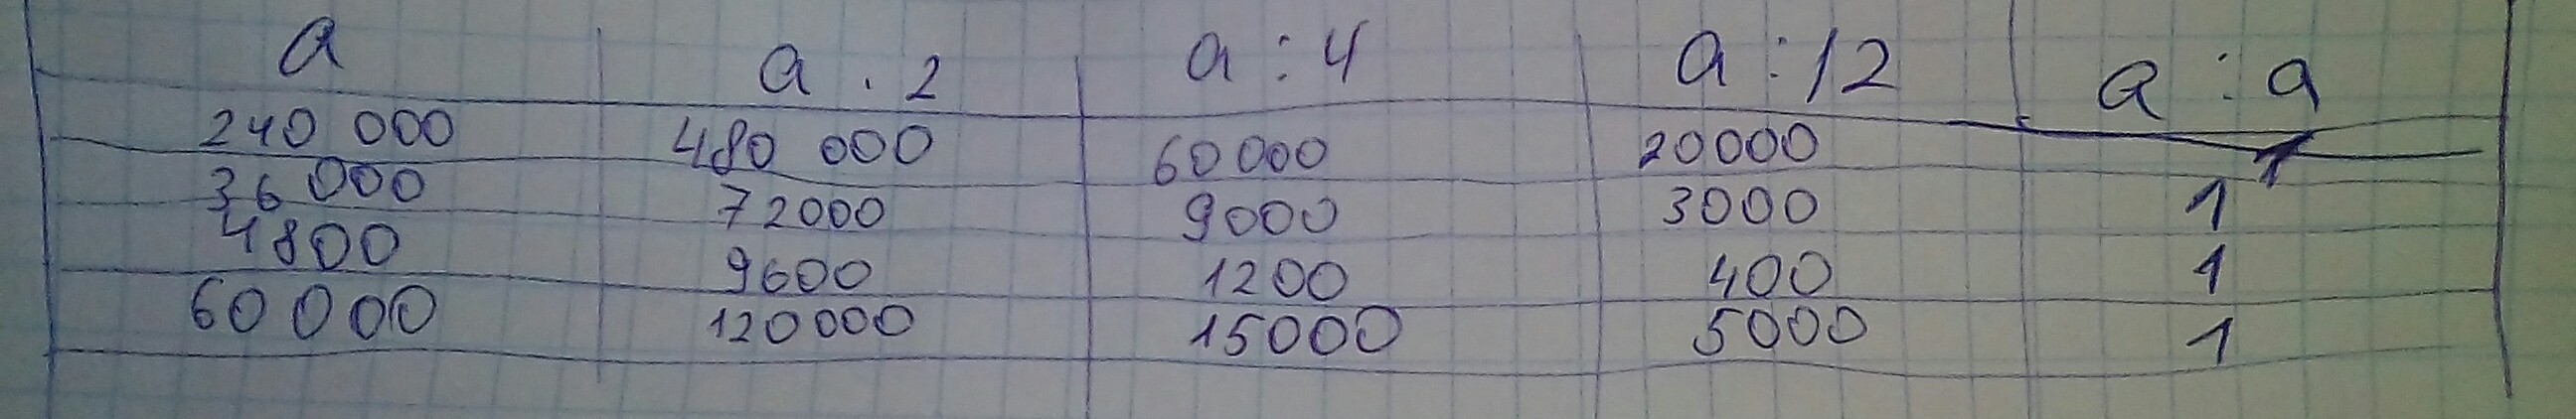 a a . 2 a : 4 a : 12 a : a
240 000 480 000 60000 20000 1
36000 72000 9000 3000 1
4800 9600 1200 400 1
60000 120000 15000 5000 1